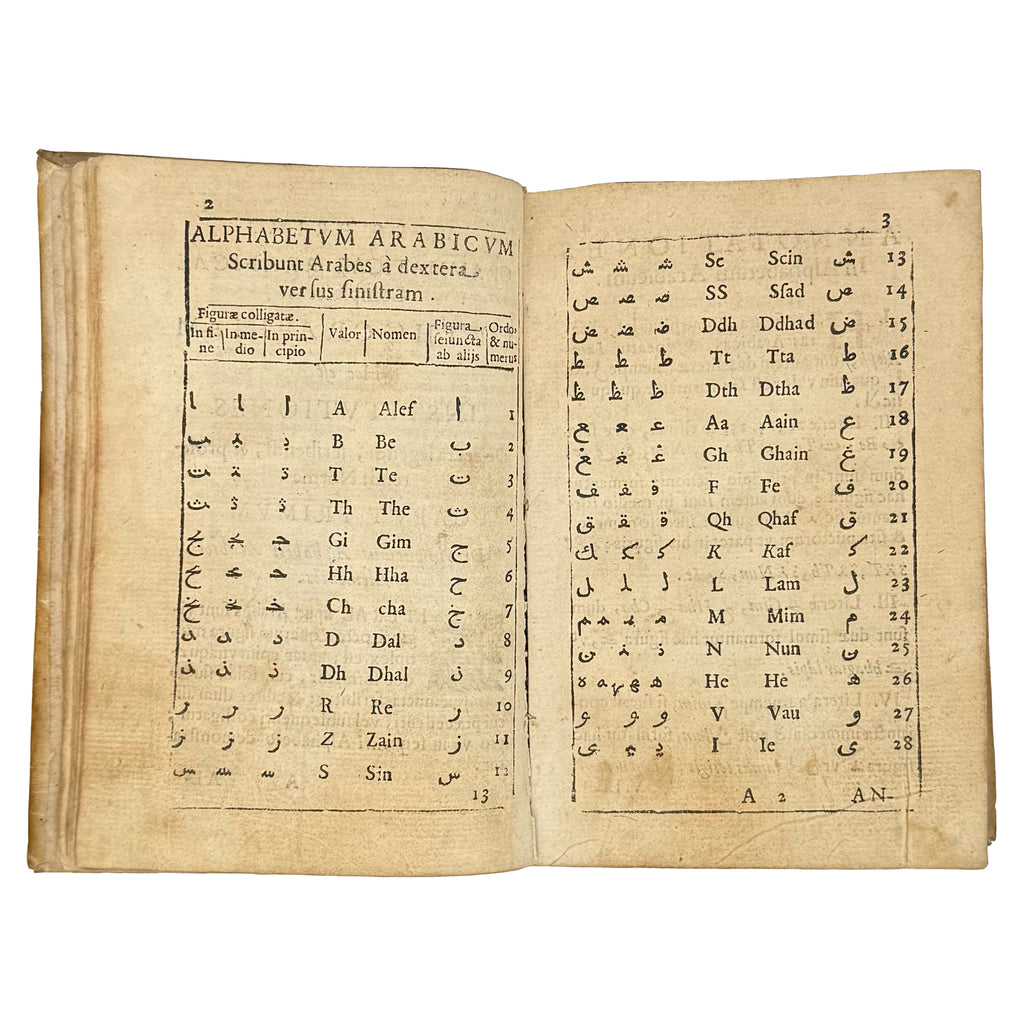 2
ALPHABETVM ARABICVM
Scribunt Arabes à dextera
versus sinistram.
Figuræ colligatæ.
In fine In medio In principio Valor Nomen Figura seiuncta ab alijs Ordo, & numerus
ـا ـا ا A Alef ا 1
ـب ـبـ بـ B Be ب 2
ـت ـتـ تـ T Te ت 3
ـث ـثـ ثـ Th The ث 4
ـج ـجـ جـ Gi Gim ج 5
ـح ـحـ حـ Hh Hha ح 6
ـخ ـخـ خـ Ch cha خ 7
ـد ـد د D Dal د 8
ـذ ـذ ذ Dh Dhal ذ 9
ـر ـر ر R Re ر 10
ـز ـز ز Z Zain ز 11
ـس ـسـ سـ S Sin س 12
13
3
ـش ـشـ شـ Sc Scin ش 13
ـص ـصـ صـ SS Ssad ص 14
ـض ـضـ ضـ Ddh Ddhad ض 15
ـط ـطـ طـ Tt Tta ط 16
ـظ ـظـ ظـ Dth Dtha ظ 17
ـع ـعـ عـ Aa Aain ع 18
ـغ ـغـ غـ Gh Ghain غ 19
ـف ـفـ فـ F Fe ف 20
ـق ـقـ قـ Qh Qhaf ق 21
ـك ـكـ كـ K Kaf ك 22
ـل ـلـ لـ L Lam ل 23
ـم ـمـ مـ M Mim م 24
ـن ـنـ نـ N Nun ن 25
ـه ـهـ هـ He He ه 26
ـو ـو و V Vau و 27
ـي ـيـ يـ I Ie ي 28
A 2 AN-